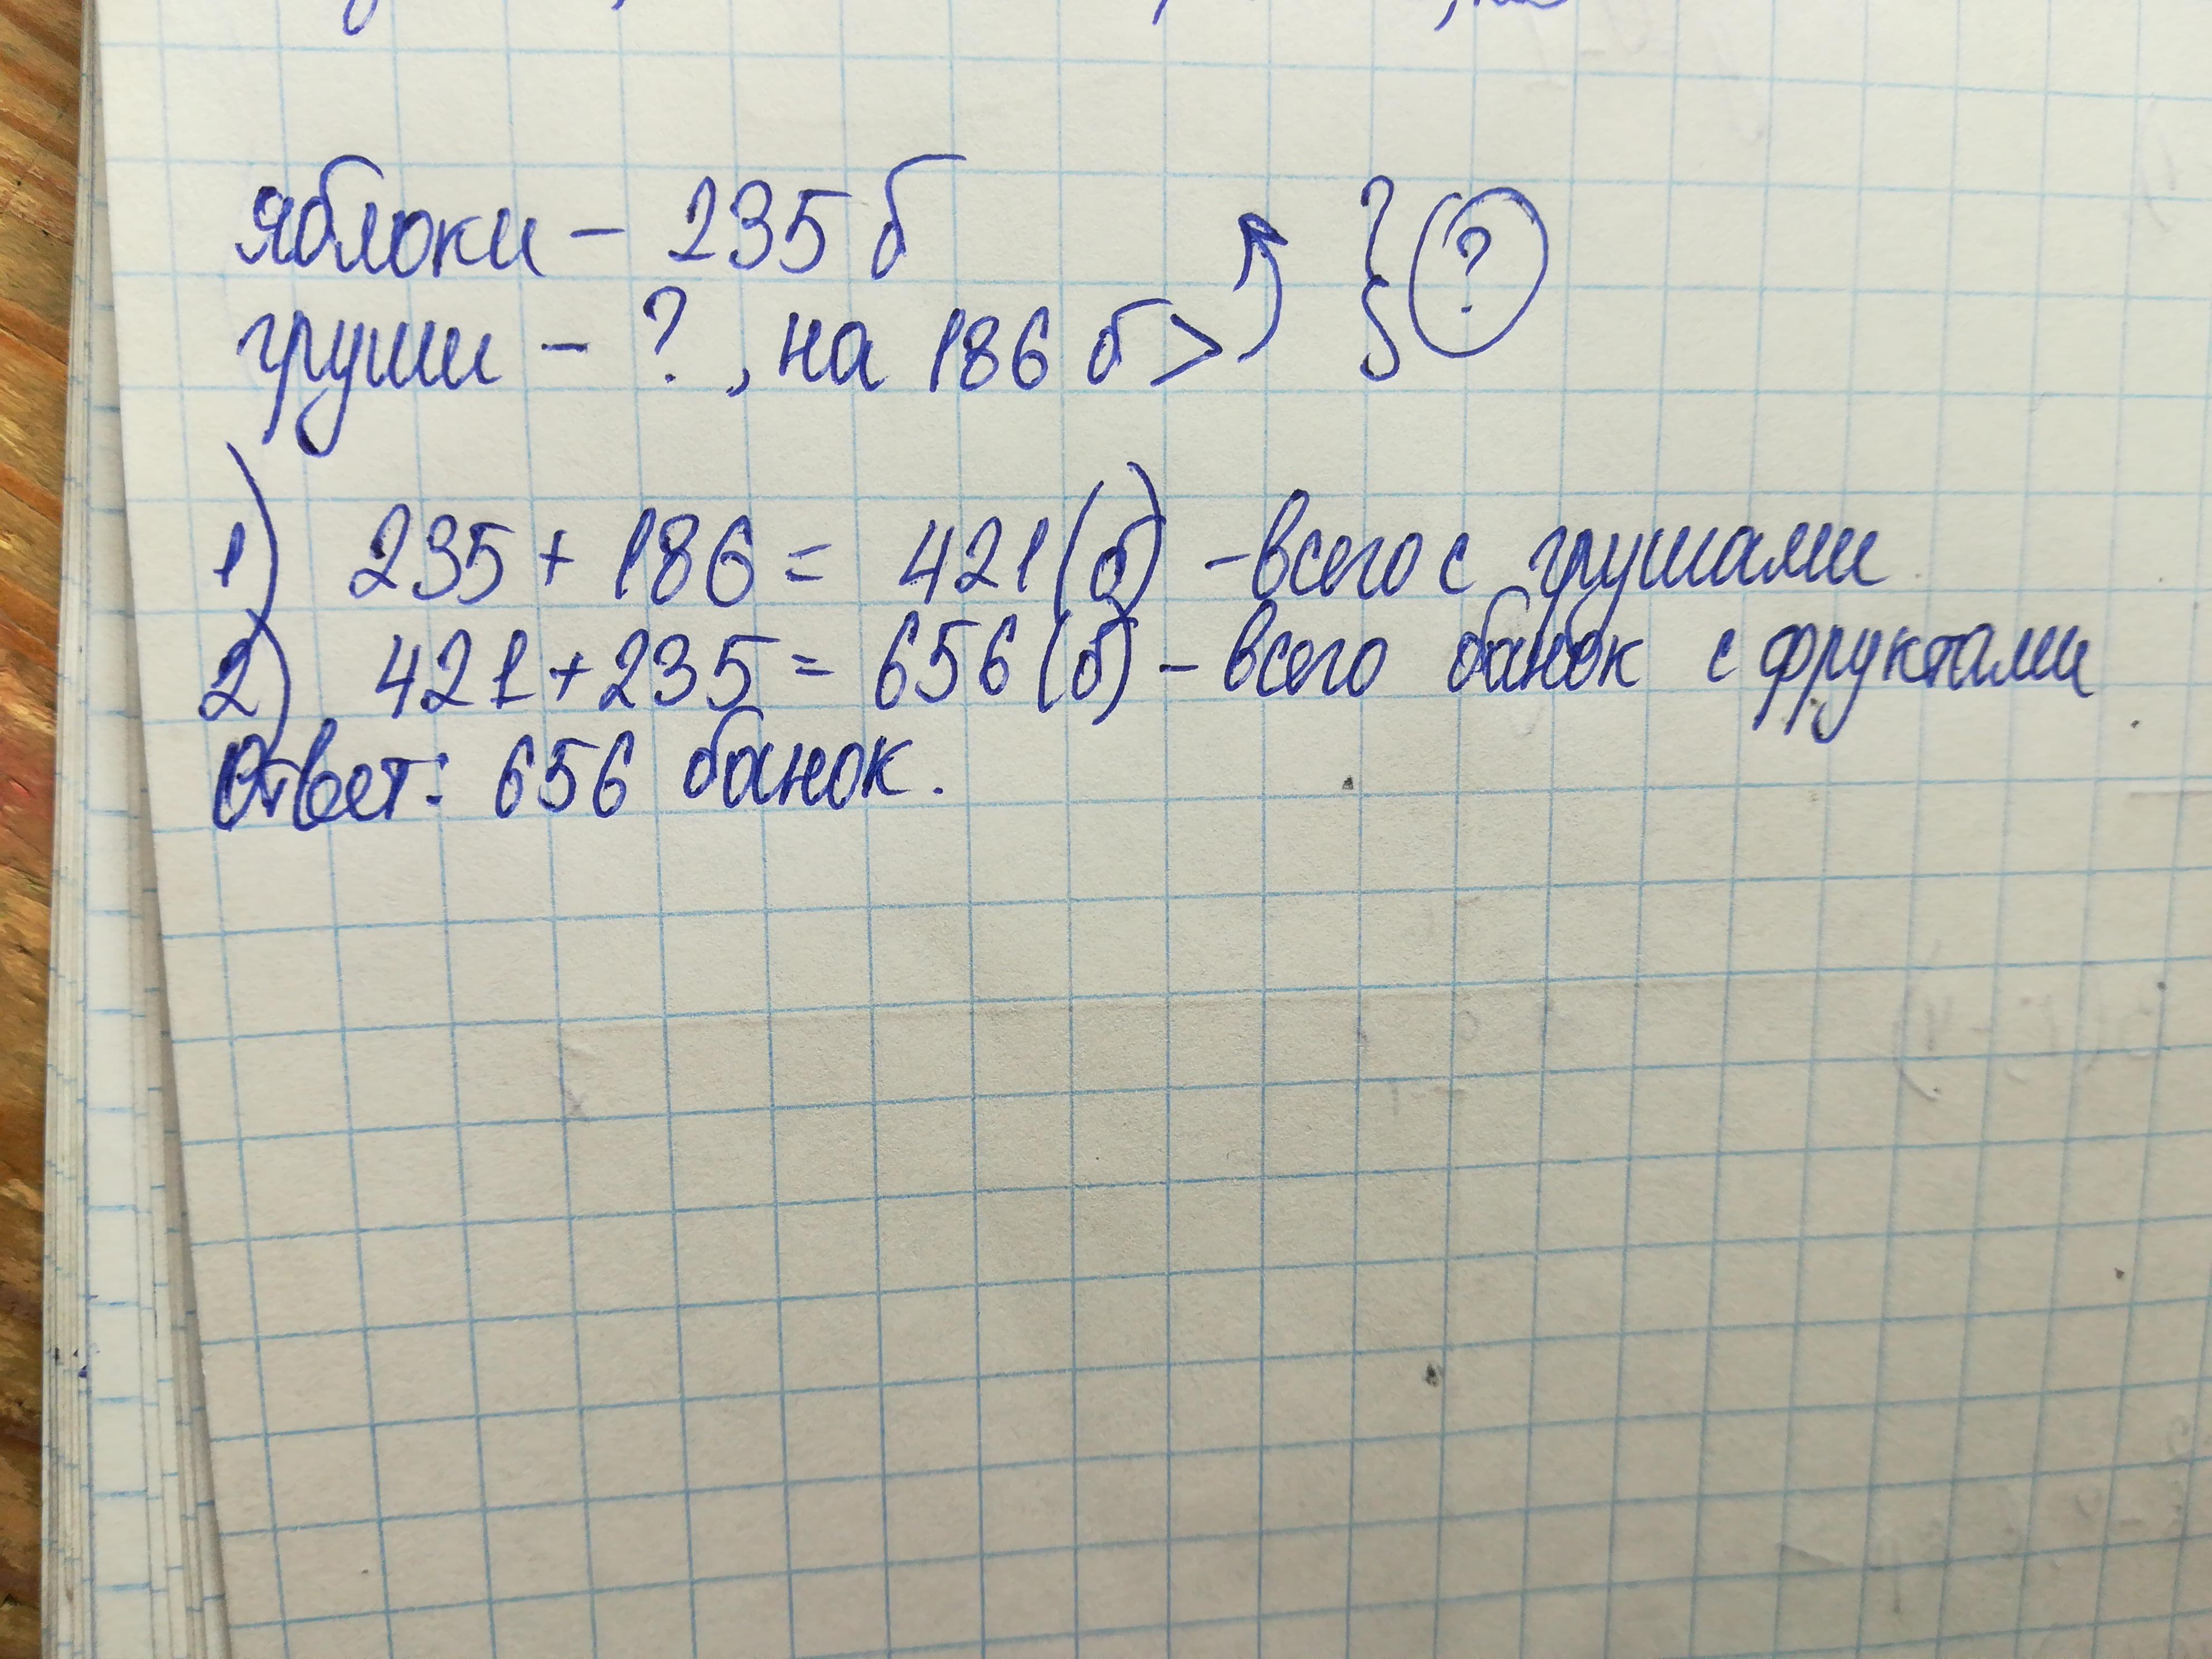 яблоки - 235 б
груши - ?, на 186 б > } ?
1) 235 + 186 = 421 (б) - всего с грушами
2) 421 + 235 = 656 (б) - всего банок с фруктами
Ответ: 656 банок.